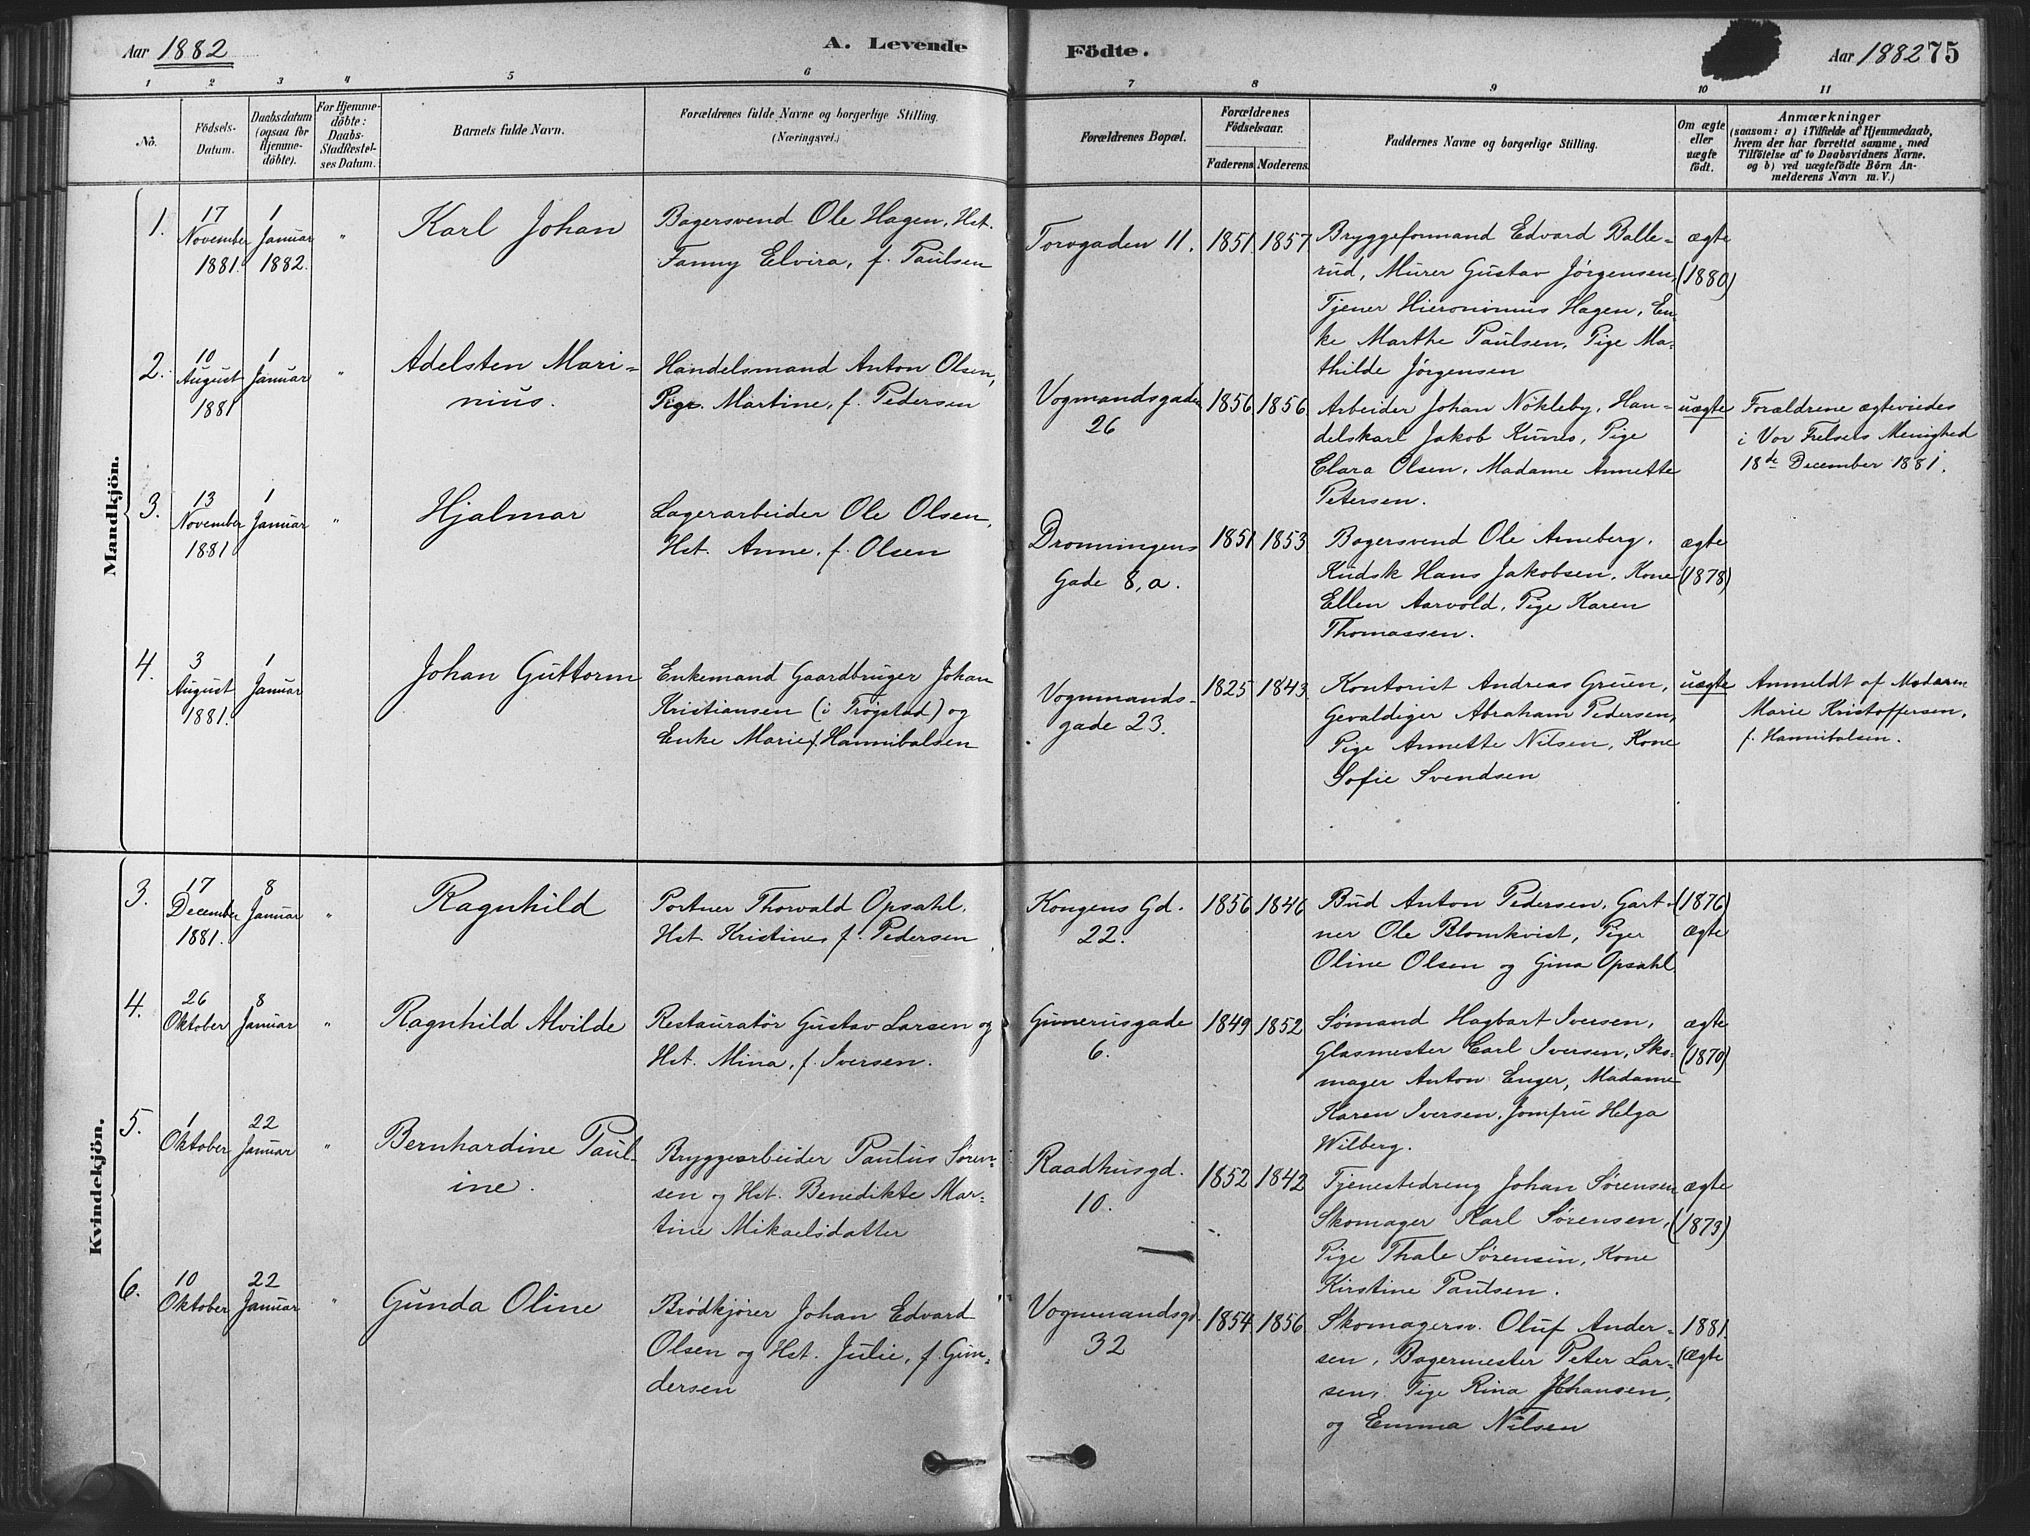 Aar 1882
A. Levende
Födte.
Aar 1882 75
1
2
3
4
5
6
7
8
9
10
11
No.
Födsels-
Datum.
Daabsdatum
(ogsaa for
Hjemme-
döbte).
For Hjemme-
döbte:
Daabs-
Stadfæstel-
ses Datum.
Barnets fulde Navn.
Forældrenes fulde Navne og borgerlige Stilling.
(Næringsvei.)
Forældrenes Bopæl.
Forældrenes
Födselsaar.
Faderens.
Moderens.
Faddernes Navne og borgerlige Stilling.
Om ægte
eller
uægte
födt.
Anmærkninger
(saasom: a) i Tilfælde af Hjemmedaab,
hvem der har forrettet samme, med
Tilföielse af to Daabsvidners Navne.
og b) ved uægtefödte Börn An-
melderens Navn m. V.)
Mandkjön.
1.
17
November
1881.
1
Januar
1882.
"
Karl Johan
Bagersvend Ole Hagen, Hst.
Fanny Elvira, f. Paulsen
Torvgaden 11.
1851.
1857
Bryggeformand Edvard Balle-
rud, Murer Gustav Jørgensen,
Tjener Hieronimus Hagen, En-
ke Marthe Paulsen, Pige Ma-
thilde Jørgensen
ægte
(1880)
2.
10
August
1881
1
Januar
"
Adelsten Mari-
nius.
Handelsmand Anton Olsen,
Pige Martine, f. Pedersen
Vogmandsgaden
26
1856
1856
Arbeider Johan Nökleby, Han-
delskarl Jakob Kunes, Pige
Clara Olsen, Madame Annette
Petersen.
uægte
Forældrene ægteviedes
i Vor Frelsers Menighed
18de December 1881.
3.
13
November
1881
1
Januar
"
Hjalmar
Lagerarbeider Ole Olsen,
Hst. Anne, f. Olsen
Dronningens
Gade 8, a.
1851
1853
Bagersvend Ole Arneberg,
Kudsk Hans Jakobsen, Kone
Ellen Aarvold, Pige Karen
Thomassen.
ægte
(1878)
4.
3
August
1881.
1
Januar
Johan Guttorm
Enkemand Gaardbruger Johan
Kristiansen (i Trøgstad) og
Enke Marie f. Hannibalsen
Vognmands-
gade 23.
1825
1843
Kontorist Andreas Gruen,
Gevaldiger Abraham Pedersen,
Pige Annette Nilsen, Kone
Sofie Svendsen
uægte
Anmeldt af Moderen
Marie Kristoffersen,
f. Hannibalsen.
Kvindekjön.
3.
17
December
1881.
8
Januar
"
Ragnhild
Portner Thorvald Opsahl,
Hst Kristine, f. Pedersen
Kongens Gd.
22.
1856
1846
Bud Anton Pedersen, Gart-
ner Ole Blomkvist, Piger
Oline Olsen og Gina Opsahl
(1876)
ægte
4.
26
Oktober
8
Januar
"
Ragnhild Alvilde
Restauratør Gustav Larsen og
Hst. Mina, f. Iversen.
Gunerusgade
6.
1849
1852
Sømand Hagbart Iversen,
Glasmester Carl Iversen, Sko-
mager Anton Enger, Madame
Karen Iversen, Jomfru Helga
Wilberg.
ægte
(1870)
5.
1
Oktober
22
Januar
"
Bernhardine Paul-
ine.
Bryggearbeider Paulus Søren-
sen og Hst. Benedikte Mar-
tine Mikaelsdatter
Raadhusgd.
10.
1852
1842
Tjenestedreng Johan Sørensen
Skomager Karl Sørensen,
Pige Thale Sørensen, Kone
Kirstine Paulsen.
ægte
(1873)
6.
10
Oktober
22
Januar
"
Gunda Oline
Brødkjører Johan Edvard
Olsen og Hst. Julie, f. Gun-
dersen
Vognmandsgd.
32
1854
1856
Skomagersv. Oluf Ander-
sen, Bagermester Peter Lar-
sen, Pige Rina Johansen,
og Emma Nilsen
1881.
(ægte